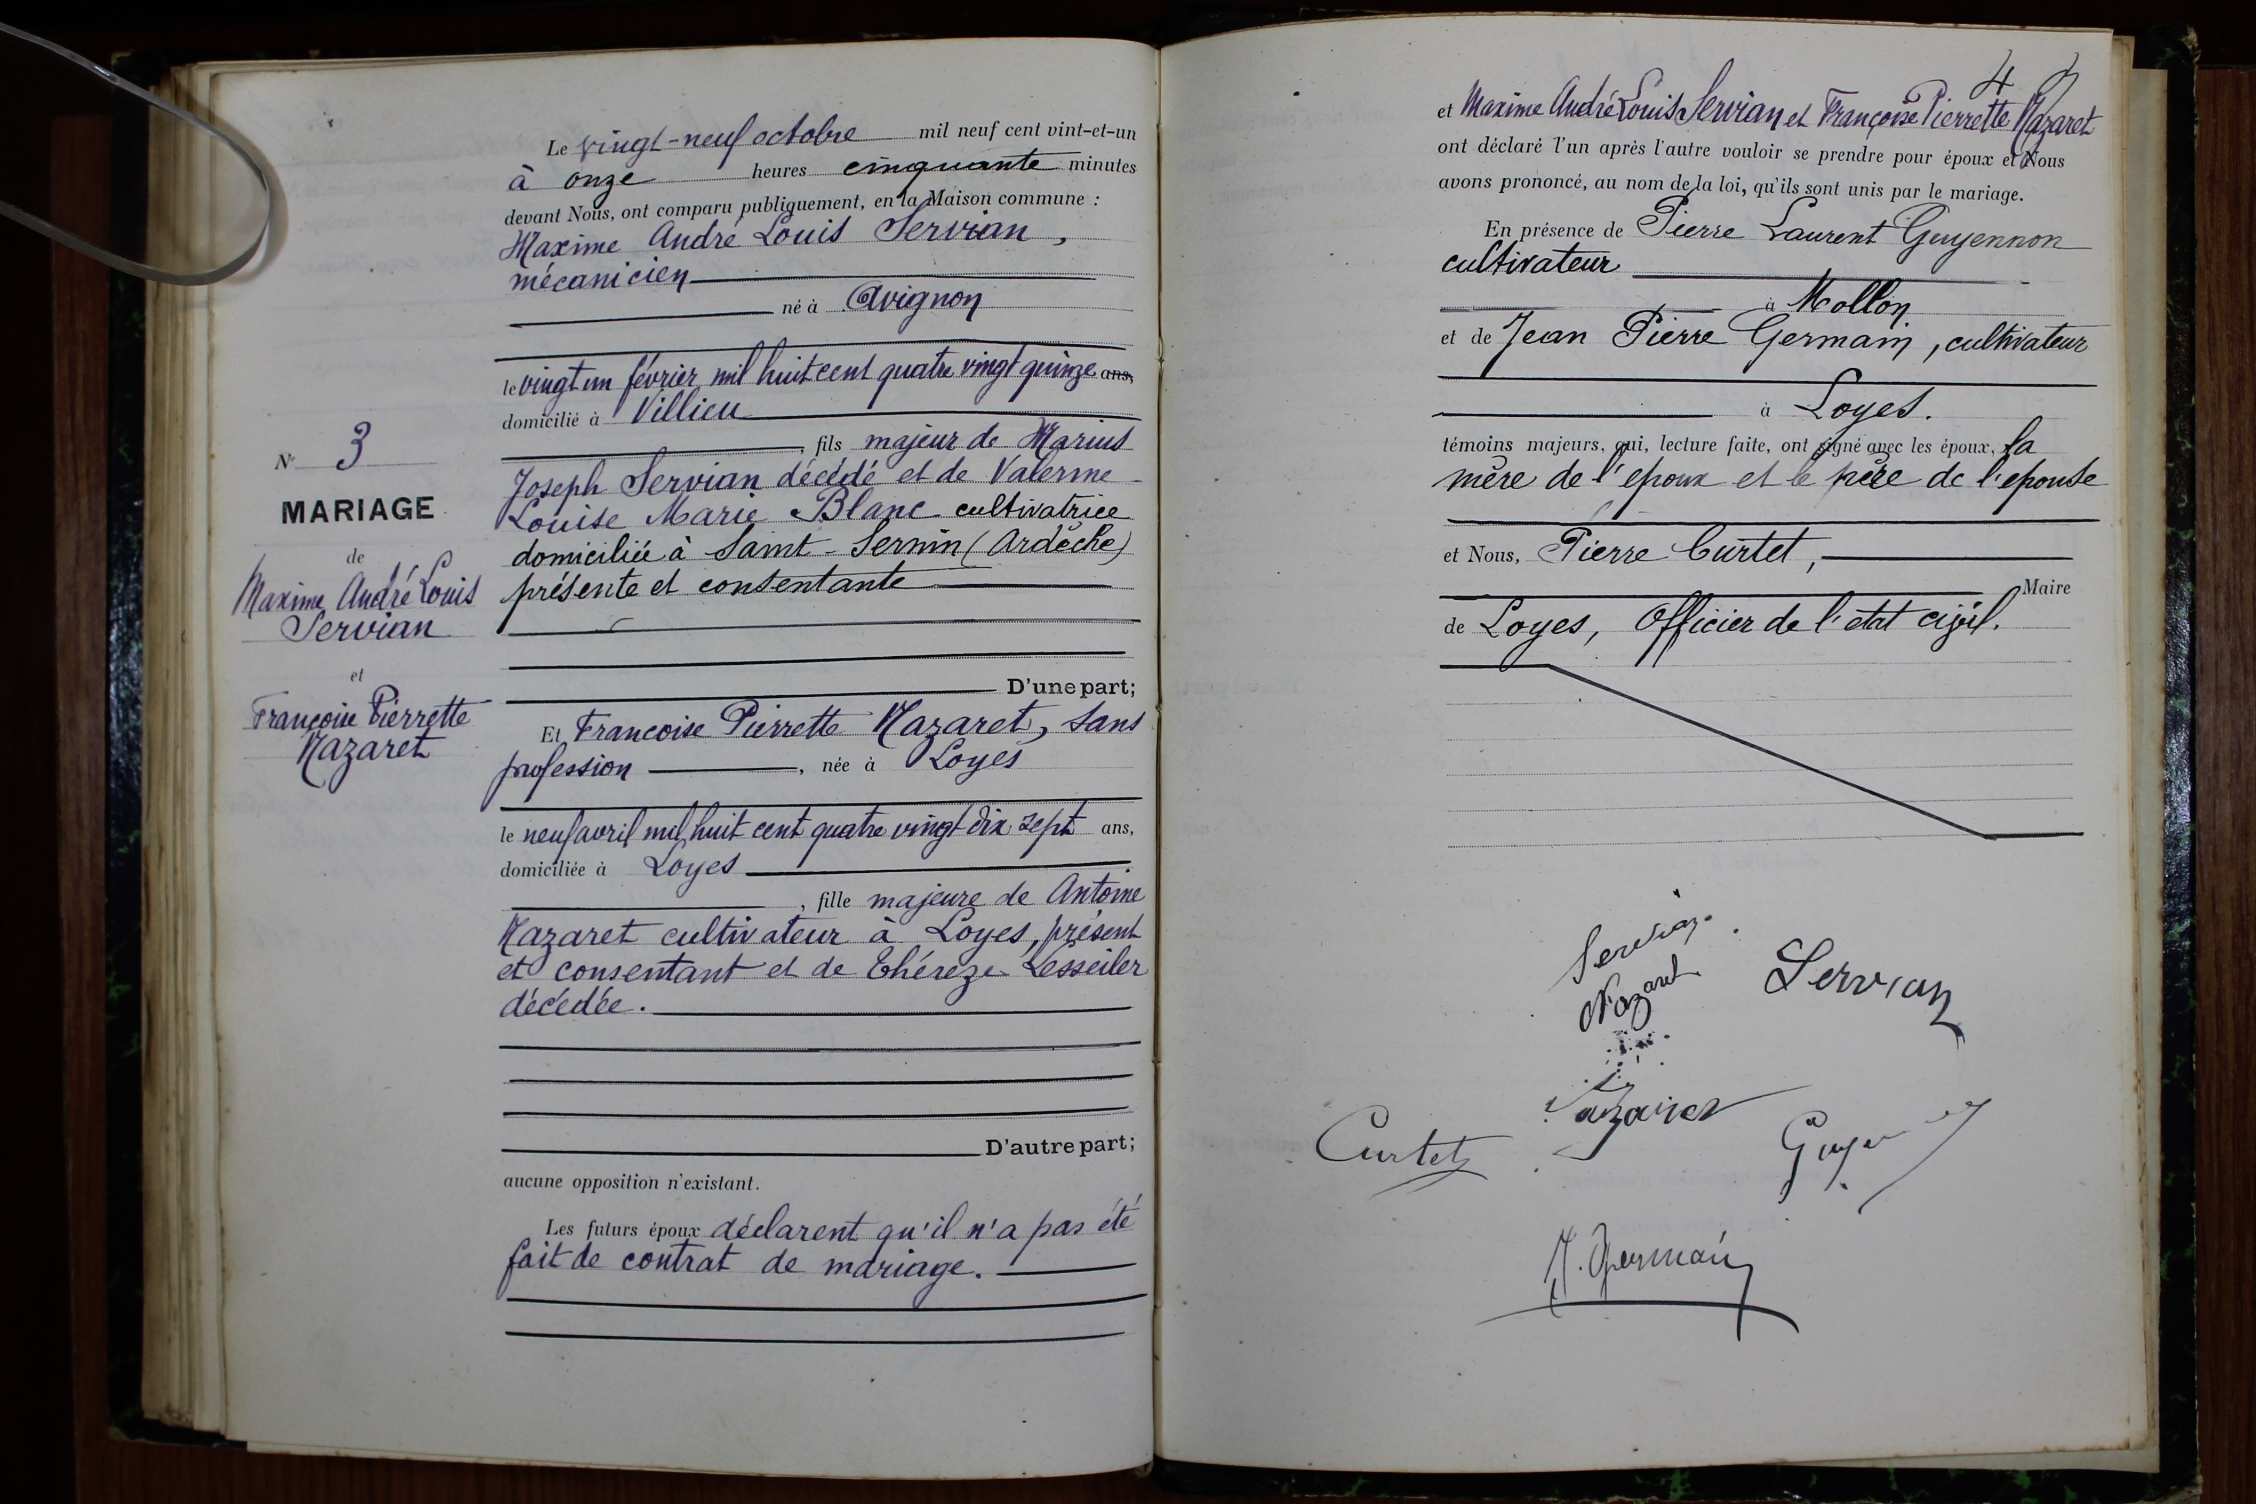 Le vingt-neuf octobre mil neuf cent vint-et-un
à onze heures cinquante minutes
devant Nous, ont comparu publiquement, en la Maison commune :
Maxime André Louis Servian,
mécanicien
né à Avignon
le vingt un février mil huit cent quatre vingt quinze ans,
domicilié à Villieu
, fils majeur de Marius
Joseph Servian décédé et de Valerine
Louise Marie Blanc cultivatrice
domiciliée à Saint-Sernin (Ardèche)
présente et consentante
D'une part;
N° 3
MARIAGE
de
Maxime André Louis
Servian
et
Françoise Pierrette
Nazaret
Et Francoise Pierrette Nazaret, sans
profession, née à Loyes
le neuf avril mil huit cent quatre vingt dix sept ans,
domiciliée à Loyes
, fille majeure de Antoine
Nazaret cultivateur à Loyes, présent
et consentant et de Théreze Lesseiler
décédée.
D'autre part;
aucune opposition n'existant.
Les futurs époux déclarent qu'il n'a pas été
fait de contrat de mariage.
4
et Maxime André Louis Servian et Françoise Pierrette Nazaret
ont déclaré l'un après l'autre vouloir se prendre pour époux et Nous
avons prononcé, au nom de la loi, qu'ils sont unis par le mariage.
En présence de Pierre Laurent Guyennon
cultivateur
à Mollon
et de Jean Pierre Germain, cultivateur
à Loyes.
témoins majeurs, qui, lecture faite, ont signé avec les époux, la
mère de l'epoux et le père de l'epouse
et Nous, Pierre Curtet,
Maire
de Loyes, Officier de l'état civil.
Servian
Nazaret
Servian
Nazaret
Curtet
Germain